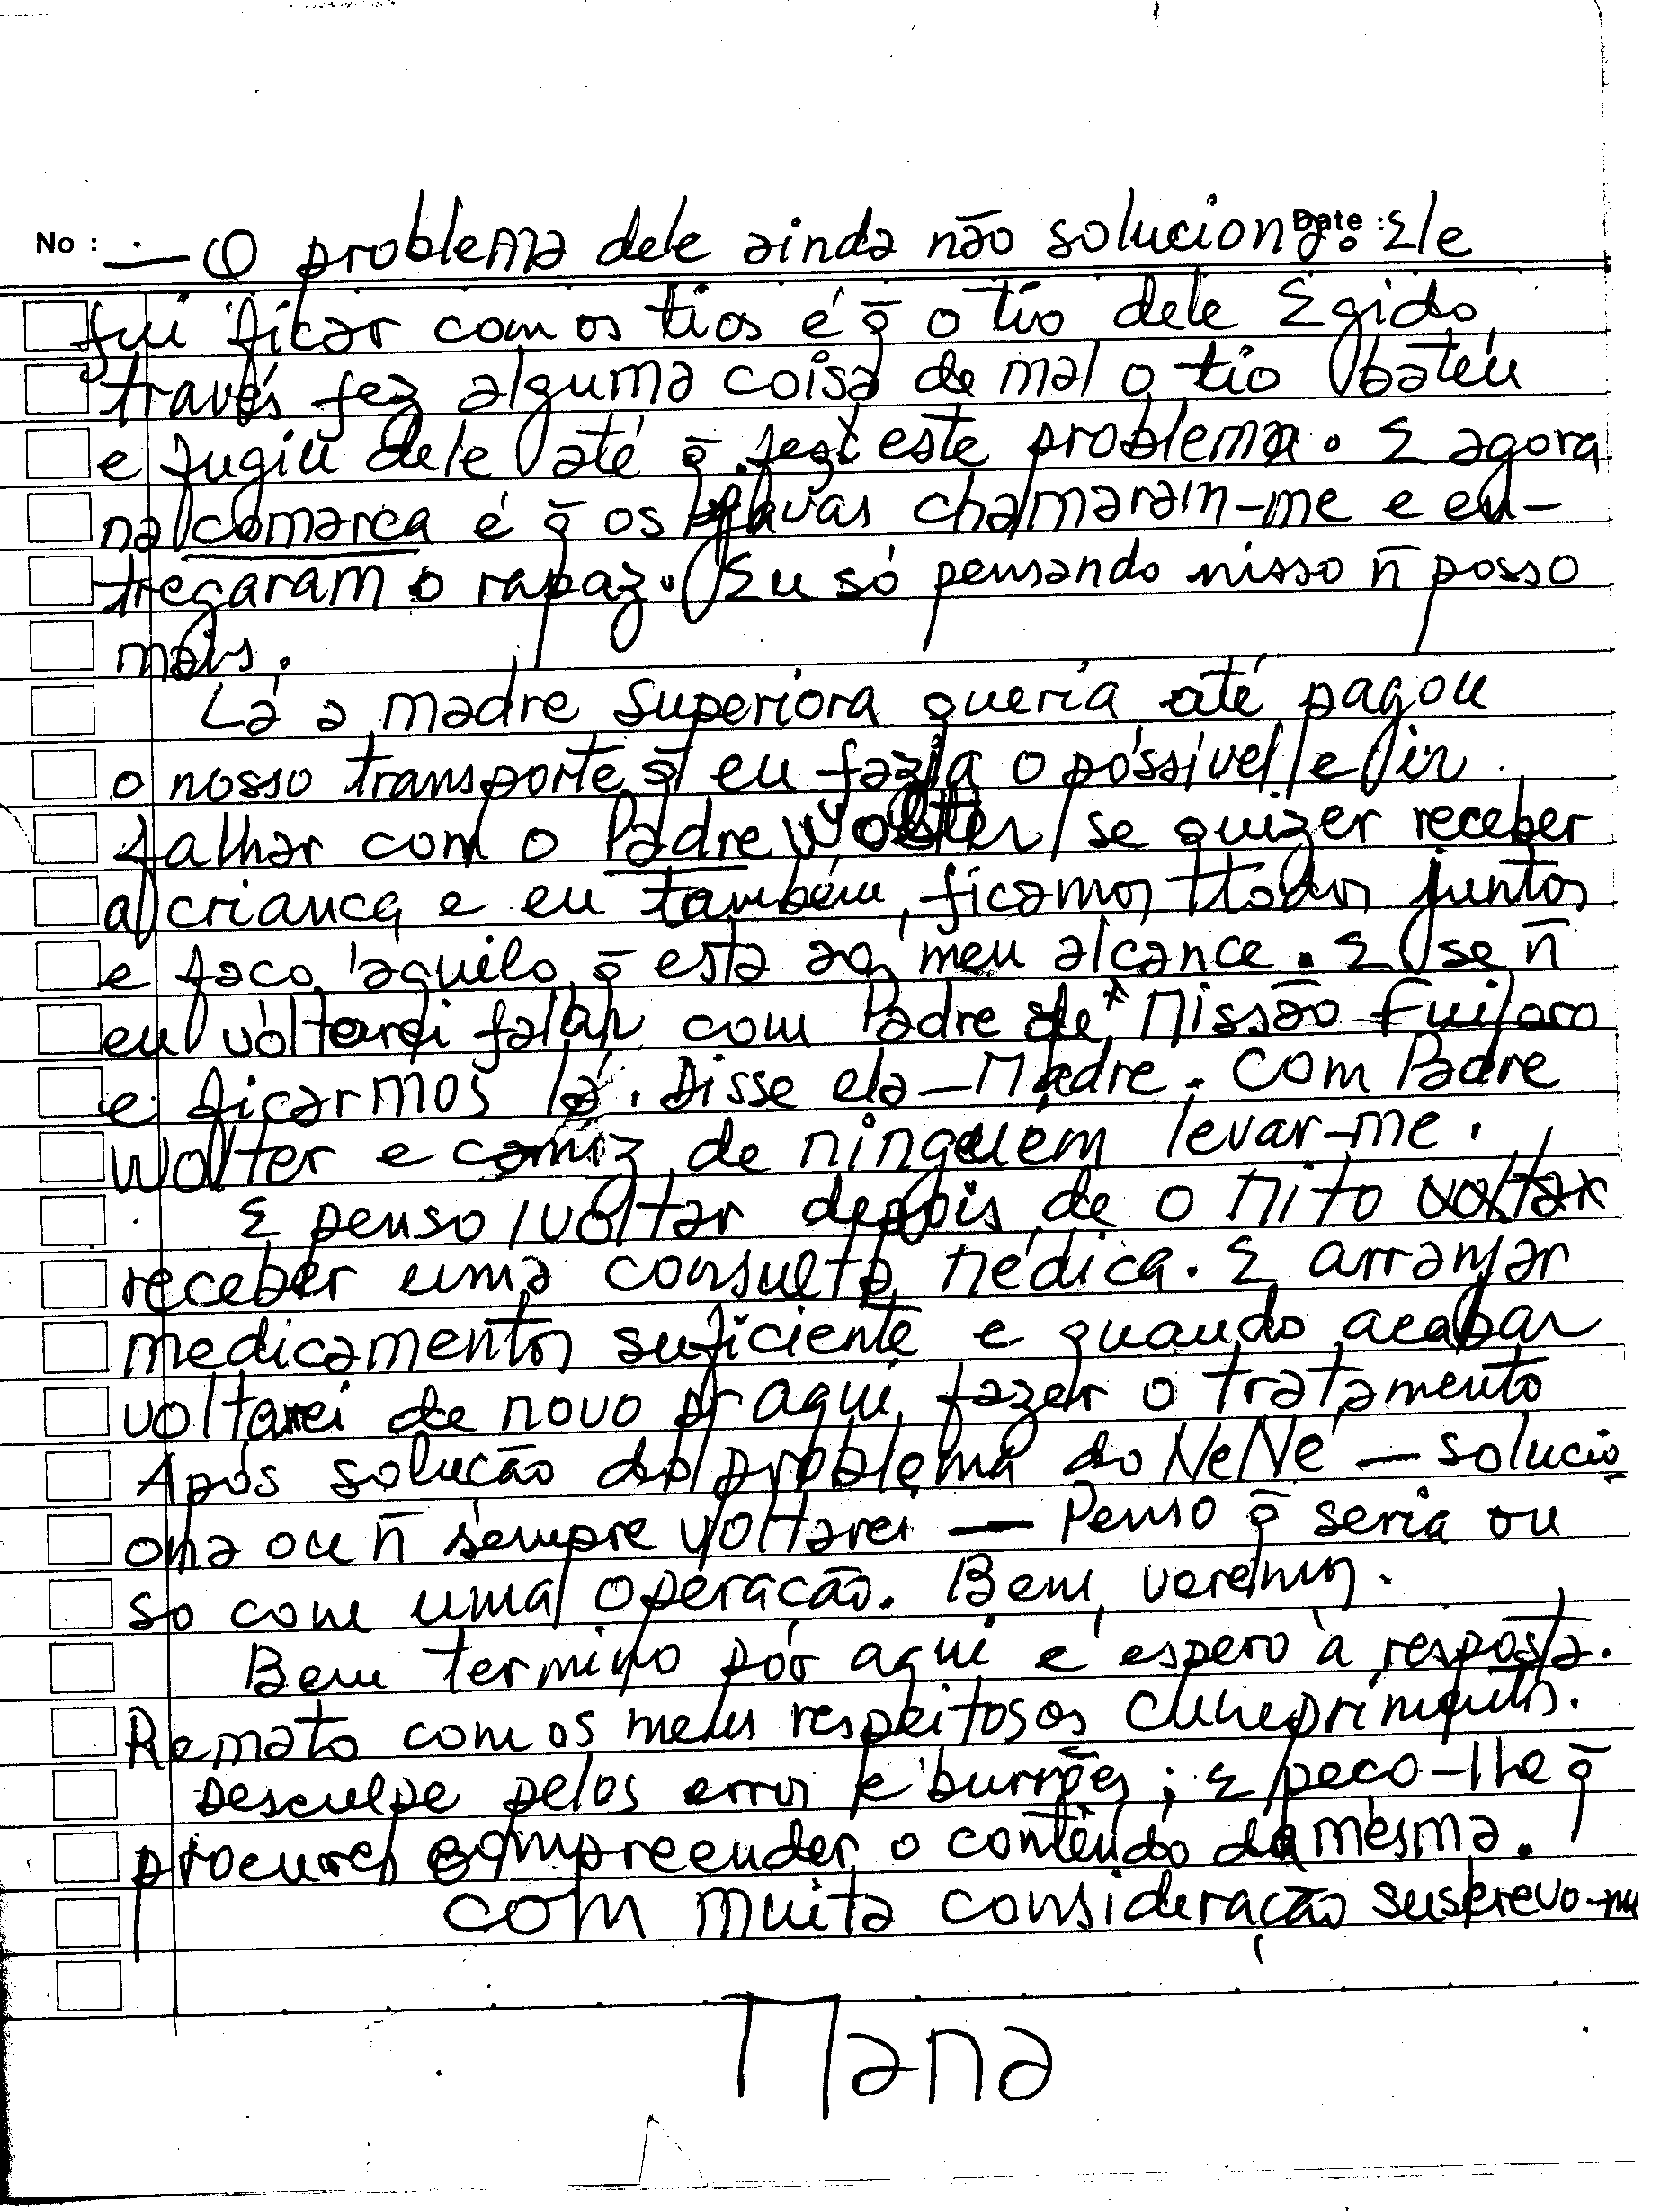 No : — O problema dele ainda não soluciona. Date : Ele
fui ficar com os tios é q̄ o tio dele Egido,
través fez alguma coisa de mal o tio bateu
e fugiu dele até q̄ fez este problema. E agora
na comarca é q̄ os chamaram-me e en-
tregaram o rapaz. Eu só pensando nisso n̄ posso
mais.
Lá a madre Superiora queria até pagou
o nosso transporte q̄ eu fazia o póssivel e ir
falhar com o Padre Wolter se quizer receber
a criança e eu também, ficamos todos juntos
e faco aquilo q̄ está ao meu alcance. E se n̄
eu voltarei falar com Padre de Missão Fuiloro
e ficarmos lá. Disse ela — Madre. Com Padre
Wolter e de ninguém levar-me.
E penso voltar depois de o Nito
receber uma consulta Médica. E arranjar
medicamentos suficiente e quando acabar
voltarei de novo pr aqui fazer o tratamento
Após solução do problema do NeNé — solucio
ona ou n̄ sempre voltarei — Penso q̄ seria ou
so com uma operacão. Bem, veremos.
Bem termino por aqui e espero a resposta.
Remato com os meus respeitosos cumprimentos.
Desculpe pelos erros e burrões; E peco-lhe q̄
procures compreender o conteúdo da mesma.
com muita consideração suscrevo-me
Mana